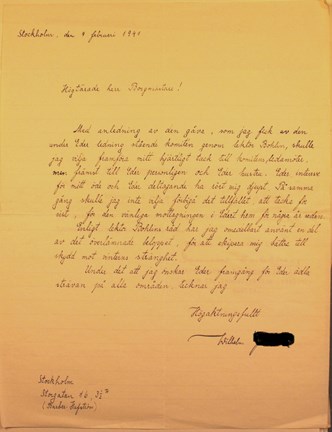 Stockholm, den 8 februari 1941
Högtärade herr Borgmästare!
Med anledning av den gåva, som jag fick av den
under Eder ledning stående komitén genom lektor Bohlin, skulle
jag vilja framföra mitt hjärtligt tack till komitén,
men främst till Eder personligen och Eder hustru. Eder intresse
för mitt öde och Eder deltagande ha rört mig djupt. På samma
gång skulle jag inte vilja förbigå det tillfället att tacka för
den vänliga mottagningen i Edert hem för några år sedan.
Enligt lektor Bohlins råd har jag omedelbart använt en del
av det överlämnade beloppet, för att ekipera mig bättre till
skydd mot vinterns stränghet.
Under det att jag önskar Eder framgång för Eder ädla
strävan på alla områden, tecknar jag
Högaktningsfullt
Wilhelm
Stockholm
Storgatan